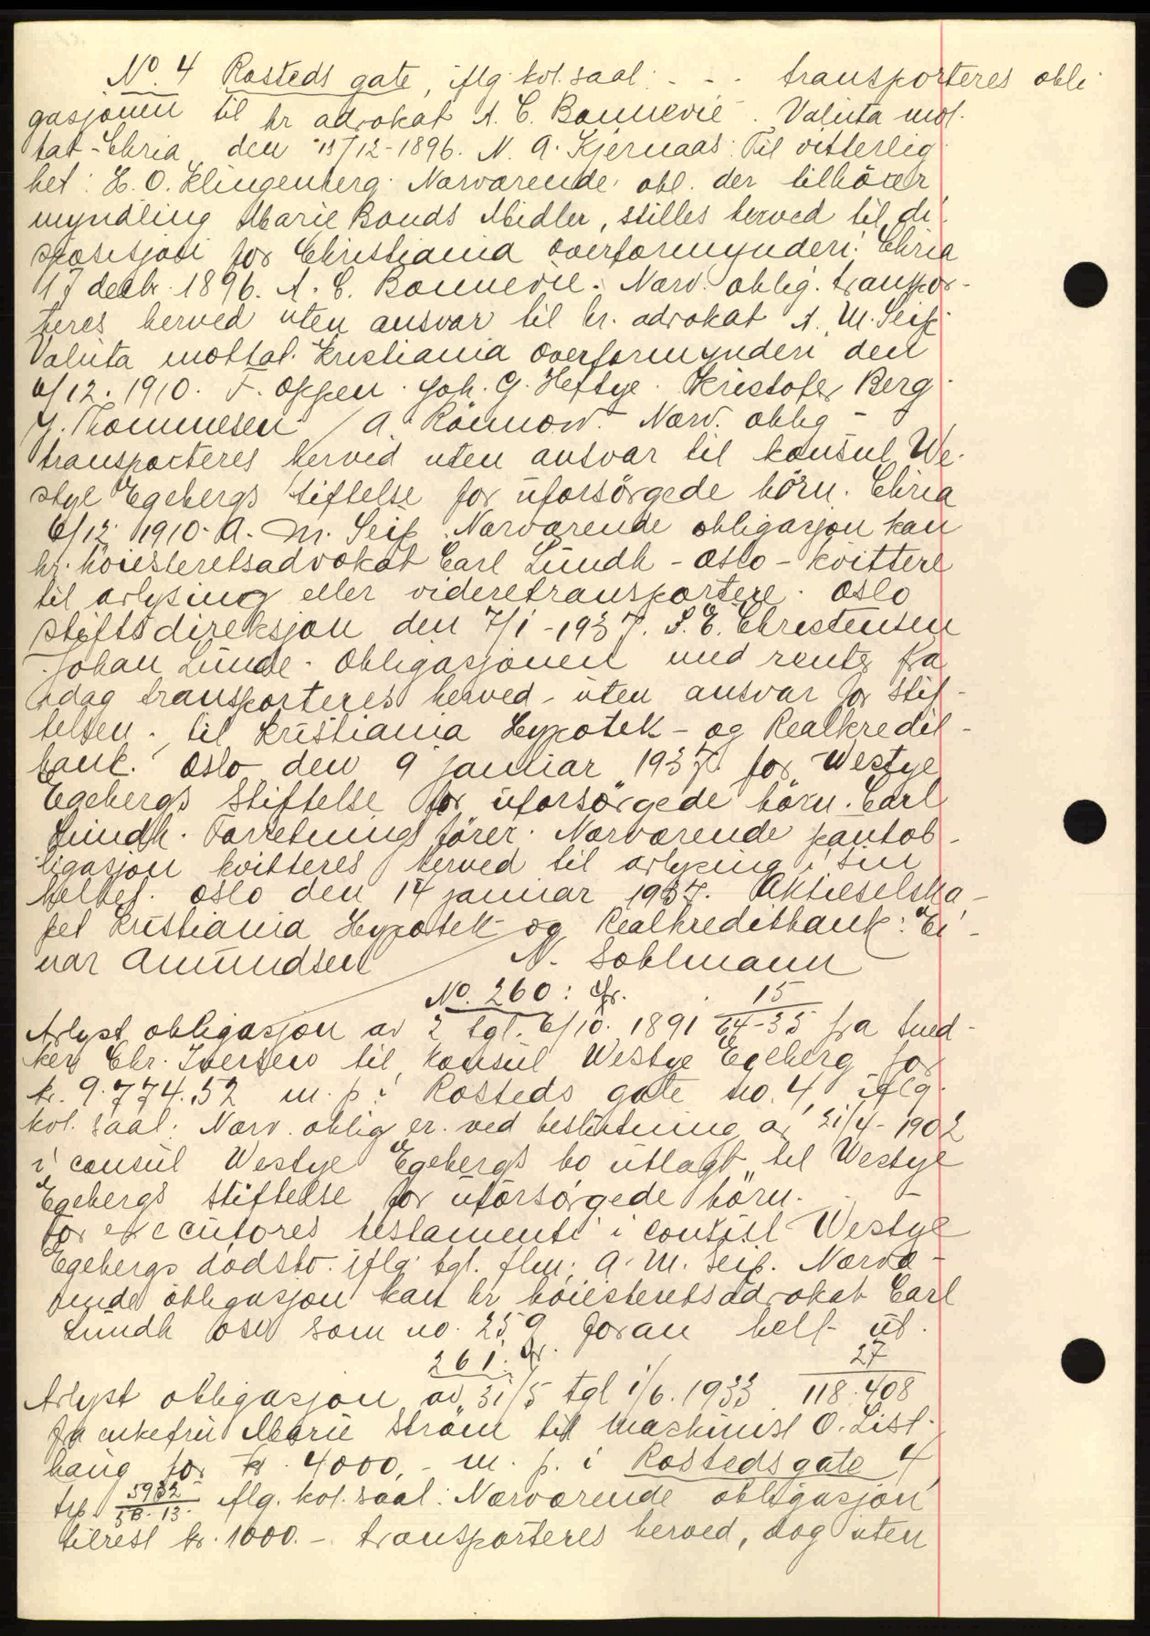 No. 4 Rosteds gate, iflg. kol. saal: - - - transporteres obli
gasjonen til hr advokat A. C. Bonnevie. Valuta mot-
tat - Chria den 15/12-1896. N. A. Kjernaas: Til vitterlig
het: H. O. Klingenberg. Nærværende obl. der tilhörer
myndling Marie Bonds Midler, stilles herved til di
sposisjon for Christiania overformynderi: Chria
17 decbr. 1896. A. C. Bonnevie. Nærv. oblig. transpor-
teres herved uten ansvar til hr. advokat A. M. Seip.
Valuta mottat. Kristiania overformynderi den
6/12. 1910. F. Oppen. Joh. G. Heftye. Kristofer Berg.
J. Thommesen / A. Rönnow. Nærv. oblig -
transporteres herved uten ansvar til konsul We-
stye Egebergs stiftelse for uforsörgede börn. Chria
6/12 1910. A. M. Seip. Nærværende obligasjon kan
hr. höiesteretsadvokat Carl Lundh - Oslo - kvittere
til avlysing eller videretransportere. Oslo
stiftsdireksjon den 7/1-1937. S. E. Christensen
Johan Lunde. Obligasjonen med renter fra
idag transporteres herved - uten ansvar for stif-
telsen - til Kristiania Hypotek- og Realkredit-
bank. Oslo den 9 januar 1937. for Westye
Egebergs Stiftelse for uforsörgede börn. Carl
Lundh. Forretningsförer. Nærværende pantob-
ligasjon kvitteres herved til avlysing i sin
helhet. Oslo den 14 januar 1937. Aktieselska-
pet Kristiania Hypotek og Realkreditbank: Ei-
nar Amundsen N. Sohlmann
No. 260: Gr. 15
Avlyst obligasjon av 2 tgl. 6/10. 1891 64-35 fra sned-
ker Chr. Iversen til konsul Westye Egeberg for
kr. 9.774.52 m. p. i Rosteds gate no. 4 iflg.
kol. saal: Nærv. oblig er ved beslutning av 21/4-1902
i consul Westye Egebergs bo utlagt til Westye
Egebergs stiftelse for uforsörgede börn. -
for executores testamenti i consul Westye
Egebergs dödsbo iflg tgl. flm: A. M. Seip. Nærvæ-
rende obligasjon kan hr höiesteretsadvokat Carl
Lundh osv som no. 259 foran helt ut.
261. Gr. 27
Avlyst obligasjon av 31/5 tgl 1/6. 1933 118.408
fra enkefru Marie Ström til maskinist O. List-
haug for kr. 4000,- m. p. i Rosteds gate 4
tip 5982 58.13. iflg. kol. saal: Nærværende obligasjon
tilrest kr. 1000.- transporteres herved, dog uten